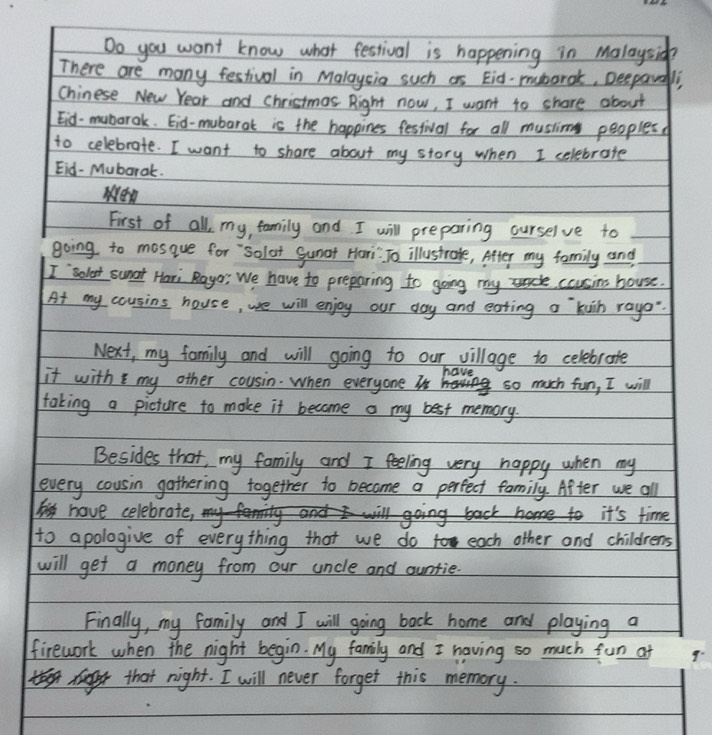 Do you want know what festival is happening in Malaysia?
There are many festival in Malaysia such as Eid-mubarak, Deepavali,
Chinese New Year and Christmas Right now, I want to share about
Eid-mubarak. Eid-mubarak is the happines festival for all muslim peoples
to celebrate. I want to share about my story when I celebrate
Eid-Mubarak.
First of all, my family and I will preparing ourselve to
going to mosque for "Solat Sunat Hari". To illustrate, After my family and
I "solat sunat Hari Raya", We have to preparing to going my cousins house.
At my cousins house, we will enjoy our day and eating a "kuih raya".
Next, my family and will going to our village to celebrate
it with my other cousin. When everyone have so much fun, I will
taking a picture to make it become a my best memory.
Besides that, my family and I feeling very happy when my
every cousin gathering together to become a perfect family. After we all
have celebrate, my family and I will going back home to it's time
to apologive of everything that we do each other and childrens
will get a money from our uncle and auntie.
Finally, my family and I will going back home and playing a
firework when the night begin. My family and I having so much fun at
that night. I will never forget this memory.